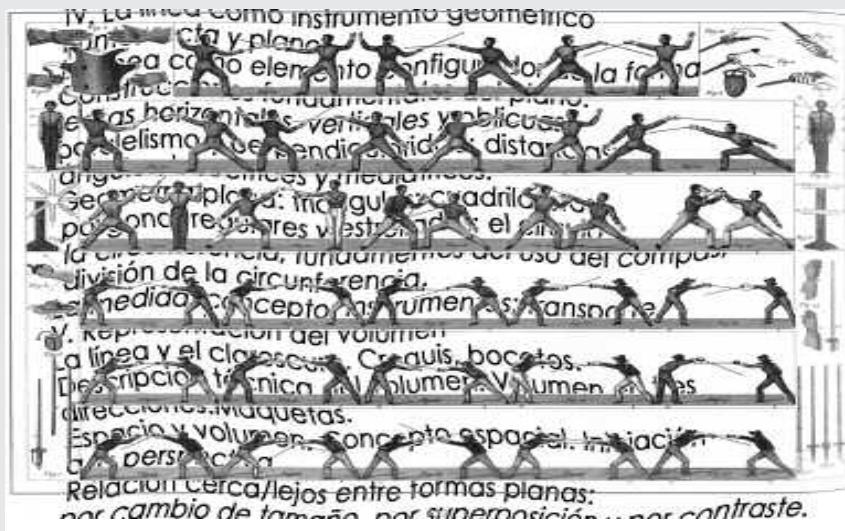 IV. La línea como instrumento geométrico
y plano
como elemento configurador de la forma
Construcciones fundamentales del plano:
horizontales, verticales y oblicuas
paralelismo perpendicularidad distancias
y mediatrices.
Geometría plana: triángulos cuadriláteros
regulares y estrellados: el
la circunferencia, fundamentos del uso del compás,
división de la circunferencia.
medida concepto instrumentos transporte
V. Representación del volumen
La línea y el claroscuro. Croquis, bocetos.
Descripción técnica del volumen. Volumen en tres
direcciones.Maquetas.
Espacio y volumen. Concepto espacial. Iniciación
a la perspectiva
Relación cerca/lejos entre formas planas:
por cambio de tamaño, por superposición y por contraste.